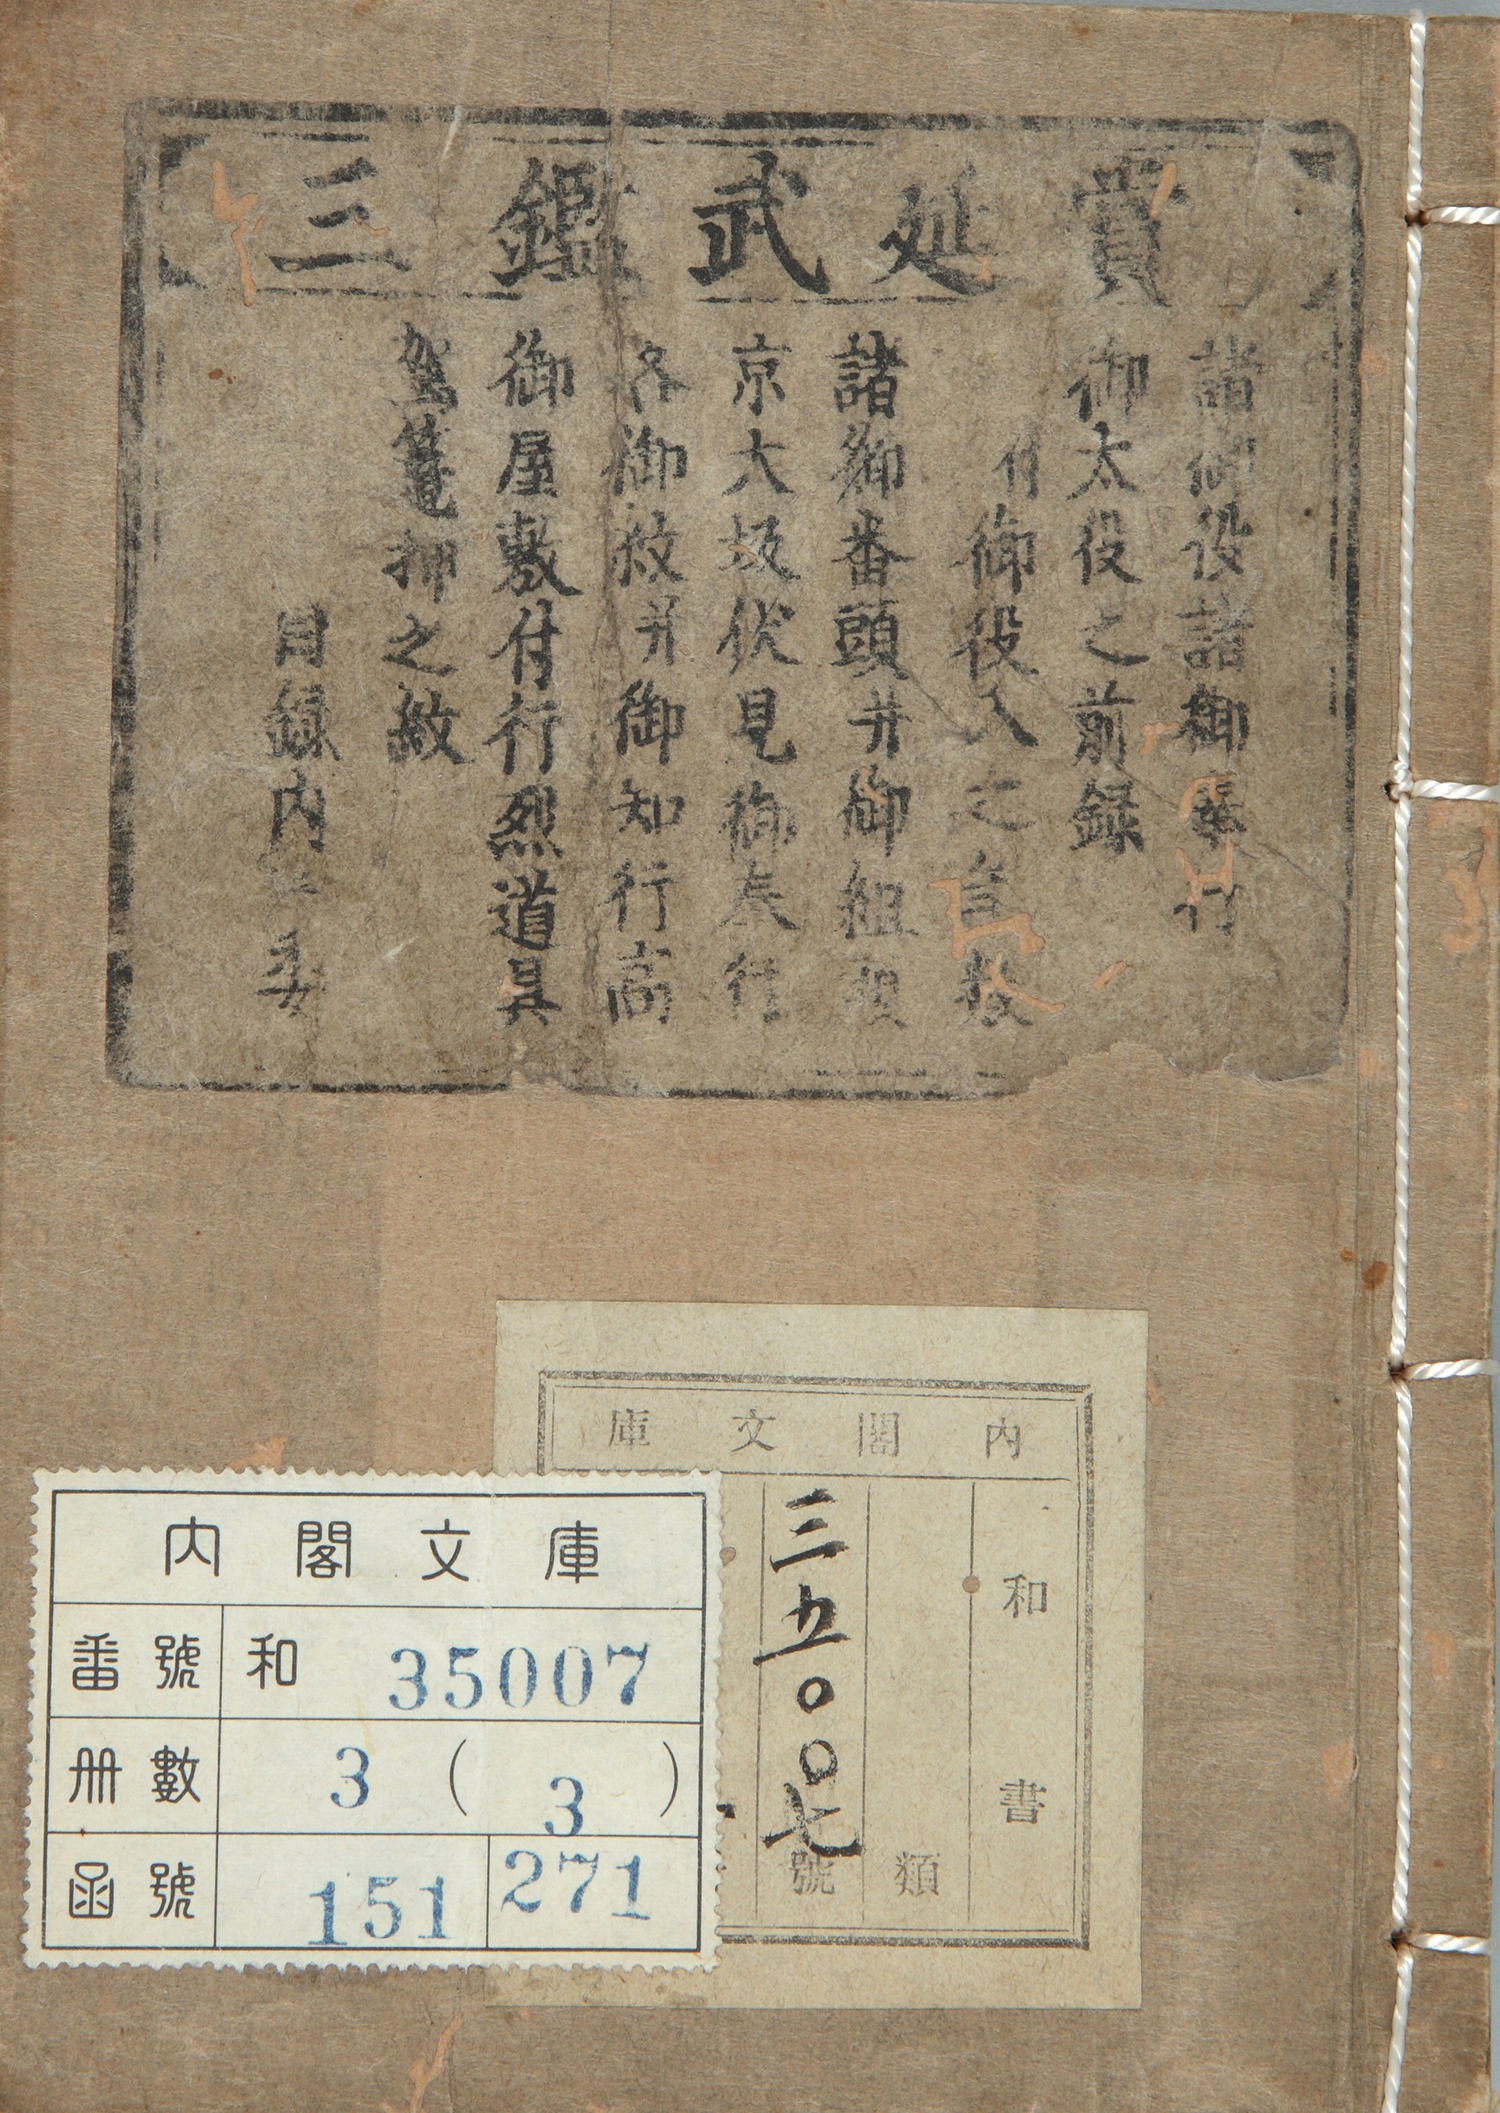 賞延武鑑三
諸御役諸御奉行
御太役之前録
付御役人之自分
諸御番頭并御組頭
京大坂伏見御奉行
各御紋并御知行高
御屋敷付行烈道具
駕篭押之紋
目録内ニ委
内閣文庫
和書
類
三五〇〇七
號
内閣文庫
番號 和 35007
冊數 3 ( 3 )
函號 151 271